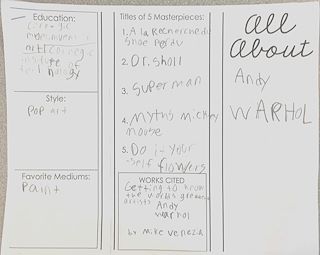 Education:
institute of
Style:
Pop art
Favorite Mediums:
Paint
Titles of 5 Masterpieces:
1. A la Recherche du
Shoe Perdu
2. Dr. Sholl
3. Superman
4. Myths mickey
mouse
5. Do it your
self flowers
WORKS CITED
Getting to know
the worlds greatest
artists Andy
Warhol
by Mike Venezia
All
About
Andy
WARHOL